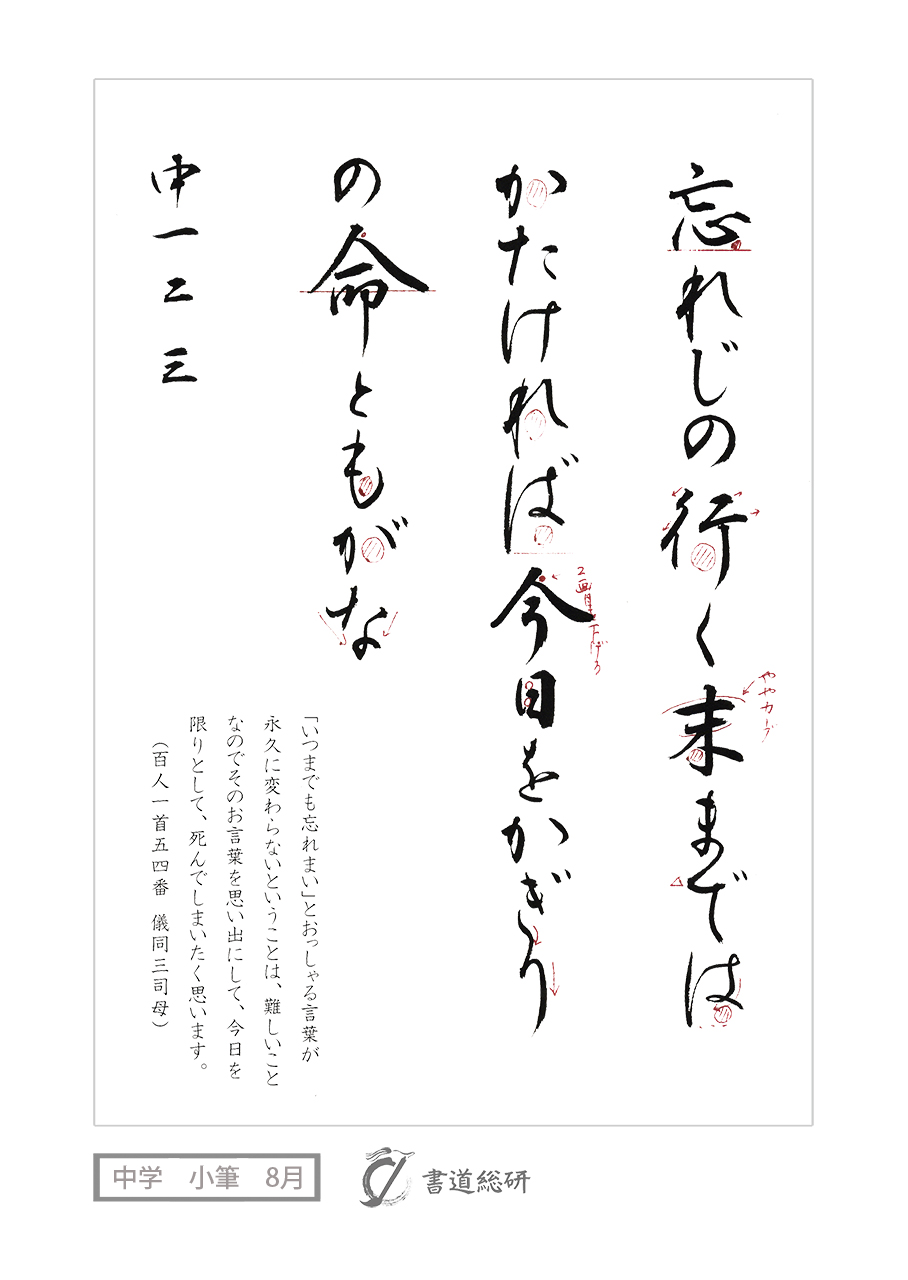 忘れじの行く末までは
ややカーブ
かたければ今日をかぎり
2画目を下げる
の命ともがな
中一二三
「いつまでも忘れまい」とおっしゃる言葉が
永久に変わらないということは、難しいこと
なのでそのお言葉を思い出にして、今日を
限りとして、死んでしまいたく思います。
（百人一首五四番　儀同三司母）
中学　小筆　8月
書道総研